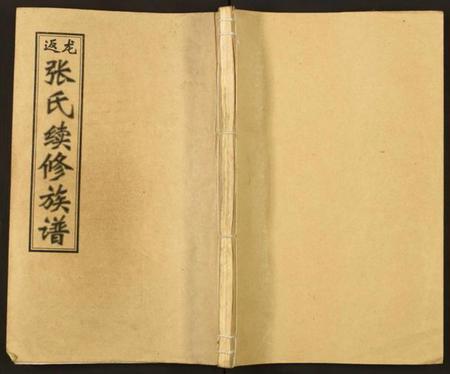 龙返
张氏续修族谱